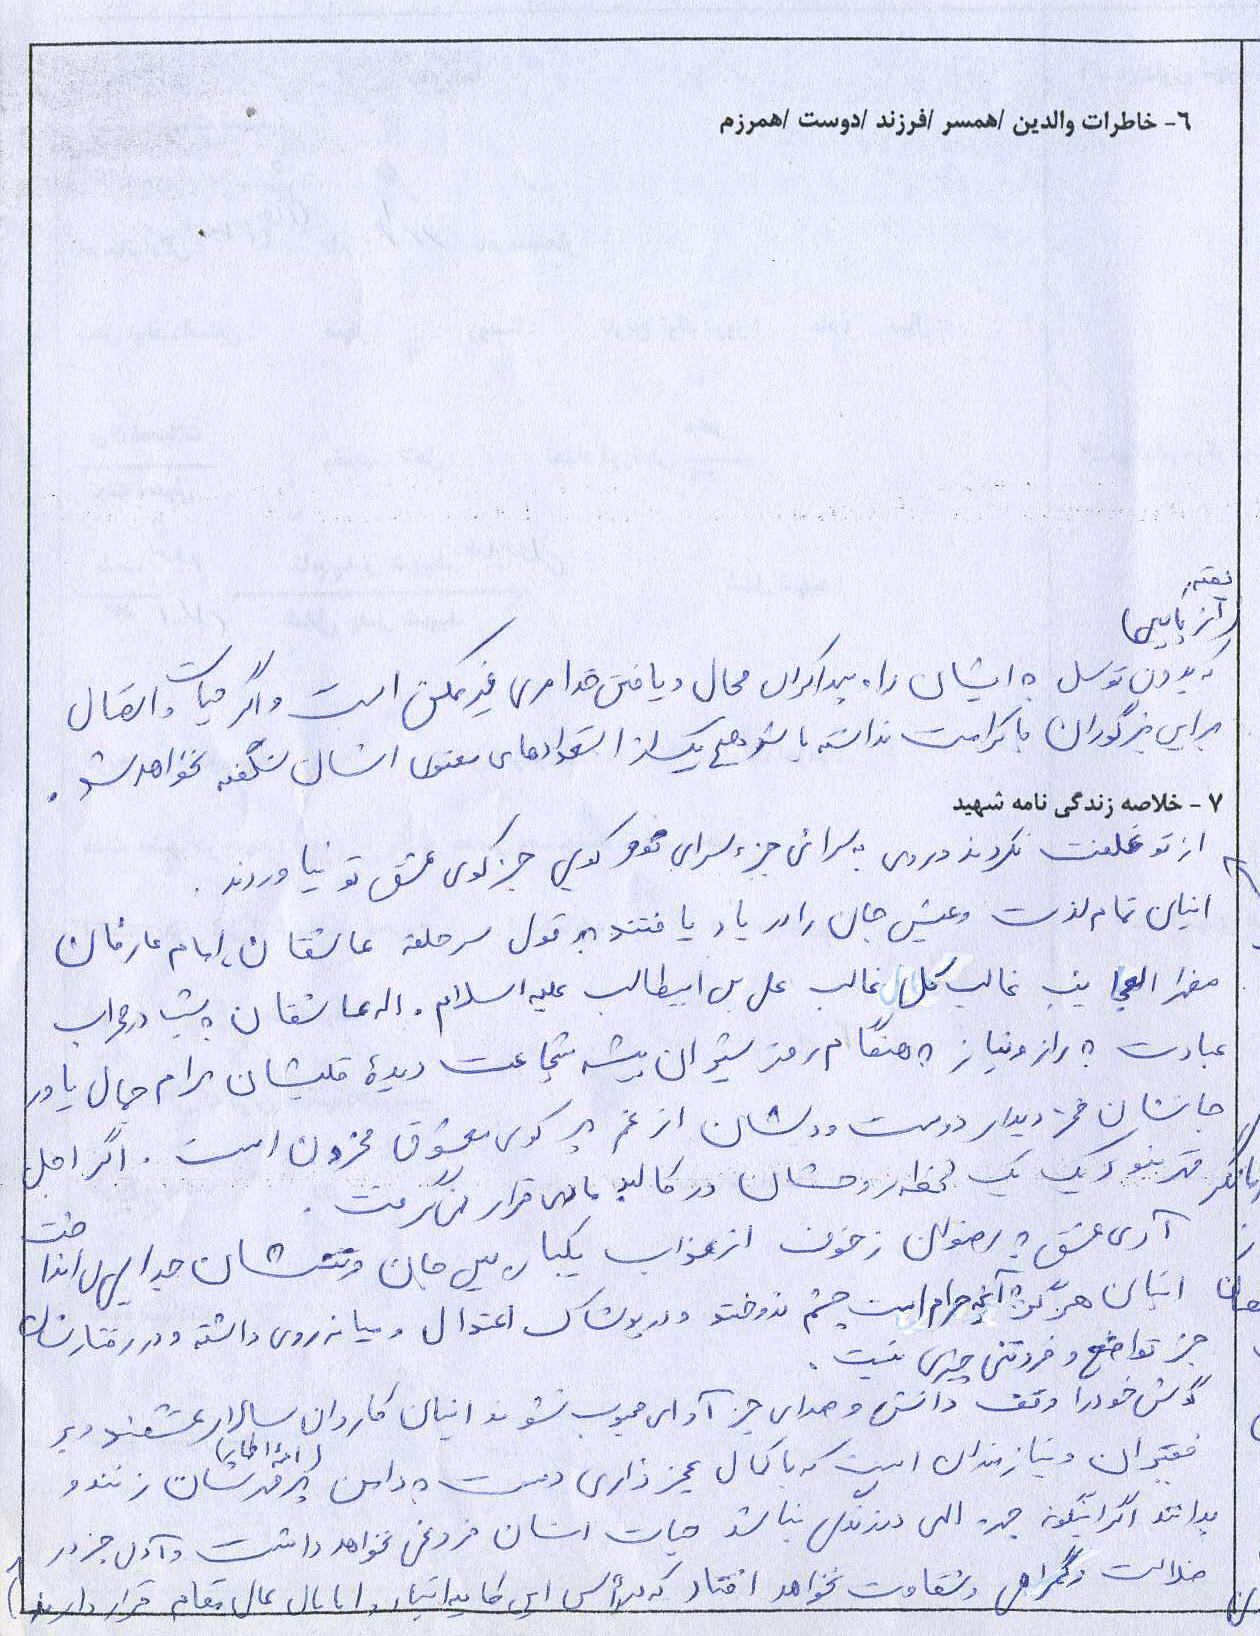 ٦- خاطرات والدین /همسر /فرزند /دوست /همرزم
بقیه
(از پایین)
که بدون توسل به ایشان راه پیدا کردن محال و یافتن خدا امری غیر ممکن است و اگر حیات و اتصال
بر این بزرگوران با کرامت نداشته باشد هیچ یک از استعدادهای معنوی انسان شگفته نخواهد شد .
٧ - خلاصه زندگی نامه شهید
از تو غلفت نکردند و روی به سرائی جزء سرای تو و کویی جز کوی عشق تو نیاوردند .
اینان تمام لذت و عیش جان را در یاد یافتند به قول سر حلقه عاشقان، امام عارفان
مظهر العجایب غالب کل غالب علی بن ابیطالب علیه اسلام . اله عاشقان شب در محراب
عبادت به راز و نیاز و هنگام رزم شیران بیشه شجاعت دیدهٔ قلبشان برام جمال یار و
جانشان محو دیدار دوست و دلشان از غم بر کوی معشوق محزون است . اگر اجل
مقدر نبود یک لحظه روحشان در کالبد مادی قرار نمی‌گرفت .
آری عشق به رضوان ز خوف از عذاب یکبار بین جان و تنشان جدایی می انداخت
اینان هرگز به آنچه حرام است چشم ندوخته و در پوشاک اعتدال و میانه روی داشته و در رفتارشان
جز تواضع و فروتنی چیزی نیست .
گوش خود را وقف دانش و صدای جز آوای محبوب نشنوند اینان کاروان سالار عشقند و بر
(ائمه اطهار)
فقیران و نیازمندان است که با کمال عجز و زاری دست به دامن پر مهرشان زنند و
بدانند اگر اینگونه چهره الهی در زندگی نباشد حیات انسان فروغی نخواهد داشت و آدمی جز در
ضلالت و گمراهی و شقاوت نخواهد افتاد که در رأس این طایفه انبیاء و امامان عالی مقام قرار دارند)